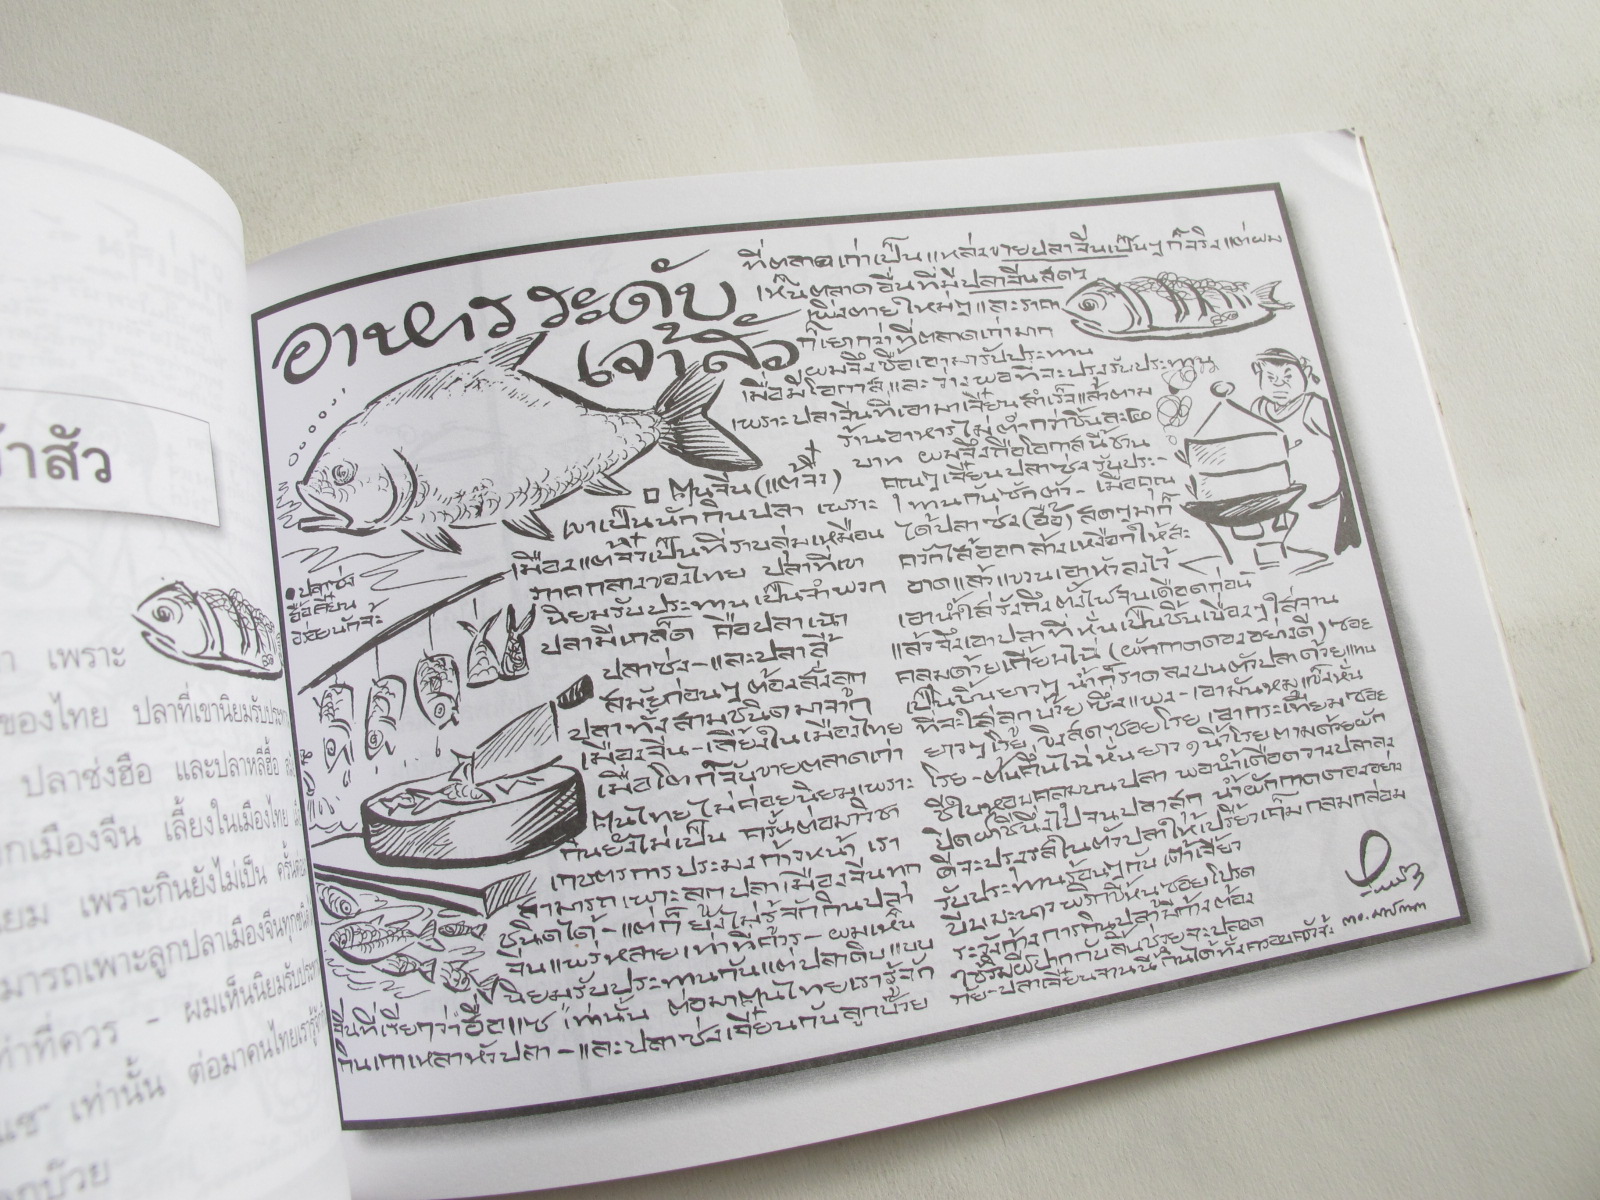 ้าสัว
า เพราะ
ของไทย ปลาที่เขานิยมรับประทาน
ปลาซ่งฮือ และปลาหลีฮื้อ
กเมืองจีน เลี้ยงในเมืองไทย
ยม เพราะกินยังไม่เป็น ครั้นต่อ
มารถเพาะลูกปลาเมืองจีนทุกชนิดไ
ท่าที่ควร - ผมเห็นนิยมรับประทา
แซ" เท่านั้น ต่อมาคนไทยเรารู้จัก
กบ๊วย
อาหารระดับ
เจ้าสัว
• ปลาซ่ง
ฮื้อเลี่ยน
อร่อยนักจ้ะ
คนจีน(แต้จิ๋ว)
เขาเป็นนักกินปลา เพราะ
เมืองแต้จิ๋วเป็นที่ราบลุ่มเหมือน
ภาคกลางของไทย ปลาที่เขา
นิยมรับประทานเป็นจำพวก
ปลามีเกล็ด คือปลาเฉา
ปลาซ่ง-และปลาลี้
สมัยก่อนๆ ต้องสั่งลูก
ปลาทั้งสามชนิดมาจาก
เมืองจีน-เลี้ยงในเมืองไทย
เมื่อโตก็จับขายตลาดเก่า
คนไทยไม่ค่อยนิยมเพราะ
กินยังไม่เป็น ครั้นต่อมาวิชา
เกษตรการประมงก้าวหน้า เรา
สามารถเพาะลูกปลาเมืองจีนทุก
ชนิดได้-แต่ก็ยังไม่รู้จักกินปลา
จีนแพร่หลายเท่าที่ควร-ผมเห็น
นิยมรับประทานกันแต่ปลาดิบแบบ
จีนที่เรียกว่า"ฮื่อแซ"เท่านั้น ต่อมาคนไทยเรารู้จัก
กินเกาเหลาหัวปลา-และปลาซ่งเจี๋ยนกับลูกบ๊วย
ที่ตลาดเก่าเป็นแหล่งขายปลาจีนเป็นๆ ก็จริง แต่ผม
เห็นตลาดอื่นที่มีปลาจีนสดๆ
เพิ่งตายใหม่ๆ และราคา
ก็เยากว่าที่ตลาดเก่ามาก
ผมจึงซื้อเอามารับประทาน
เมื่อมีโอกาสและว่างพอที่จะปรุงรับประทาน
เพราะปลาจีนที่เอามาเจี๋ยนสำเร็จแล้วตาม
ร้านอาหารไม่ต่ำกว่าชิ้นละ๘๐
บาท ผมจึงถือโอกาสนี้ชวน
คุณๆเจี๋ยนปลาซ่งรับประ-
ทานกันซักตัว- เมื่อคุณ
ได้ปลาซ่ง(ฮื้อ)สดๆมาก็
ควักไส้ออกล้างเหงือกให้สะ
อาดแล้วแขวนเอาหัวลงไว้
เอาน้ำใส่รังถึงตั้งไฟจนเดือดก่อน
แล้วจึงเอาปลาที่หั่นเป็นชิ้นเบื้องๆใส่จาน
คลุมด้วยเกี้ยมไฉ่ (ผักกาดดองอย่างดี) ซอย
เป็นชิ้นยาวๆ น้ำก็ราดลงบนตัวปลาด้วยแทน
ที่จะใส่ลูกบ๊วยซึ่งแพง-เอามันหมูแข็งหั่น
ยาวๆโรย ขิงสดๆซอยโรย เอากระเทียมซอย
โรย-ต้นคื่นไฉ่หั่นยาว ๑ นิ้วโรยตามด้วยผัก
ชีใบหอมคลุมบนปลา พอน้ำเดือดวางปลาลง
ปิดฝาชีนึ่งไปจนปลาสุก น้ำผักกาดดองอย่าง
ดีจะปรุงรสในตัวปลาให้เปรี้ยวเค็มกลมกล่อม
รับประทานร้อนๆกับเต้าเจี้ยว
บีบมะนาวพริกขี้หนูซอยโปรด
ระวังก้างการกินปลามีก้างต้อง
ใช้ริมฝีปากกับลิ้นช่วยจะปลอด
ภัย-ปลาเจี๋ยนจานนี้กินได้ทั้งครอบครัวจ้ะ